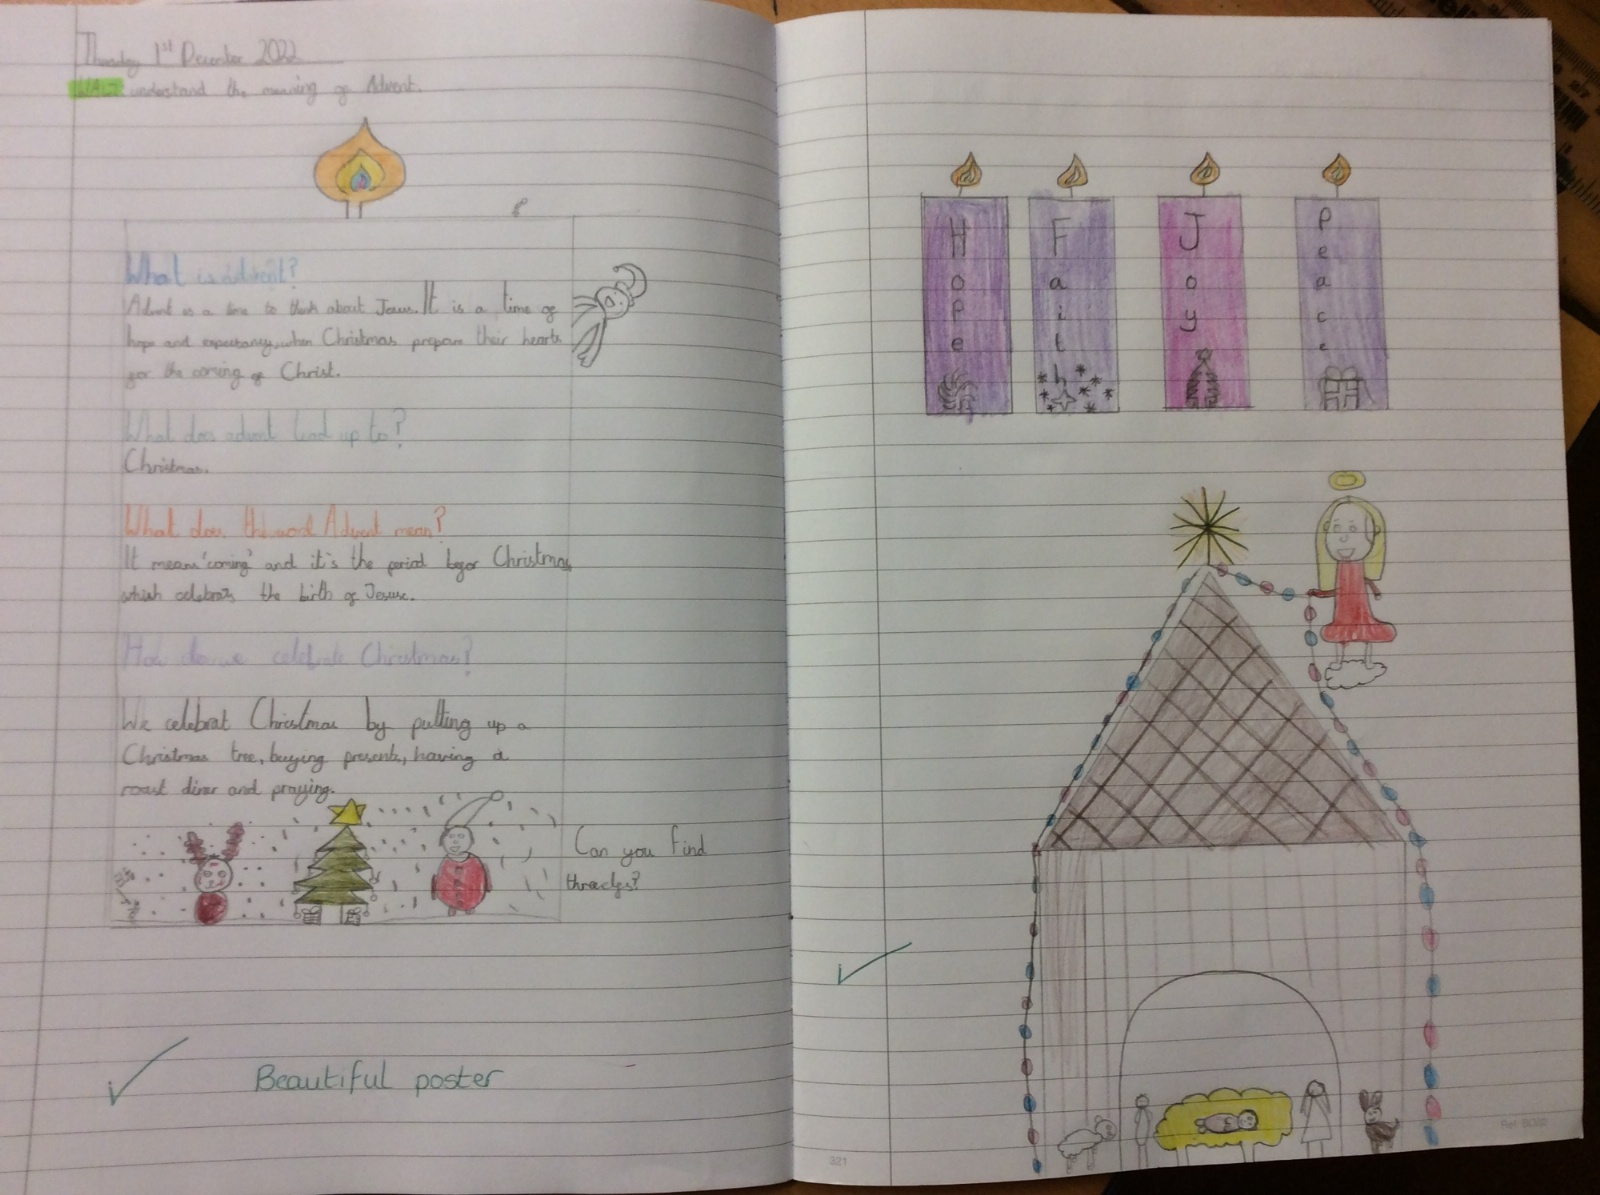 Thursday 1st December 2022
WALT understand the meaning of Advent.
What is advent?
Advent is a time to think about Jesus. It is a time of
hope and expectancy, when Christmas prepare their hearts
for the coming of Christ.
What does advent lead up to?
Christmas.
What does the word Advent mean?
It means 'coming' and it's the period befor Christmas
which celebrats the birth of Jesus.
How do we celebrate Christmas?
We celebrat Christmas by putting up a
Christmas tree, buying presents, having a
roast diner and praying.
Can you find
Beautiful poster
Hope
Faith
Joy
Peace
321